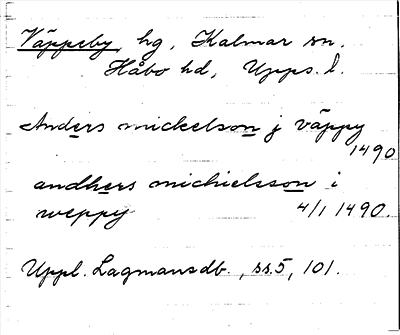 Väppeby, hg, Kalmar sn.
Håbo hd, Upps. l.
Anders mickelson j väppy
1490
andhers michielsson i
weppy 4/1 1490.
Uppl. Lagmansdb., ss. 5, 101.